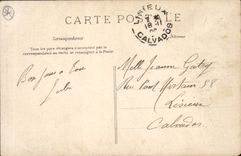 CARTE POSTALE
LISIEUX
18-11
CALVADOS
Correspondance
Adresse
Tous les pays étrangers n'acceptent pas la
correspondance au recto, se renseigner à la Poste
Bon Jour à Tous
Melle Jeanne
Rue Paul 58
Lisieux
Calvados